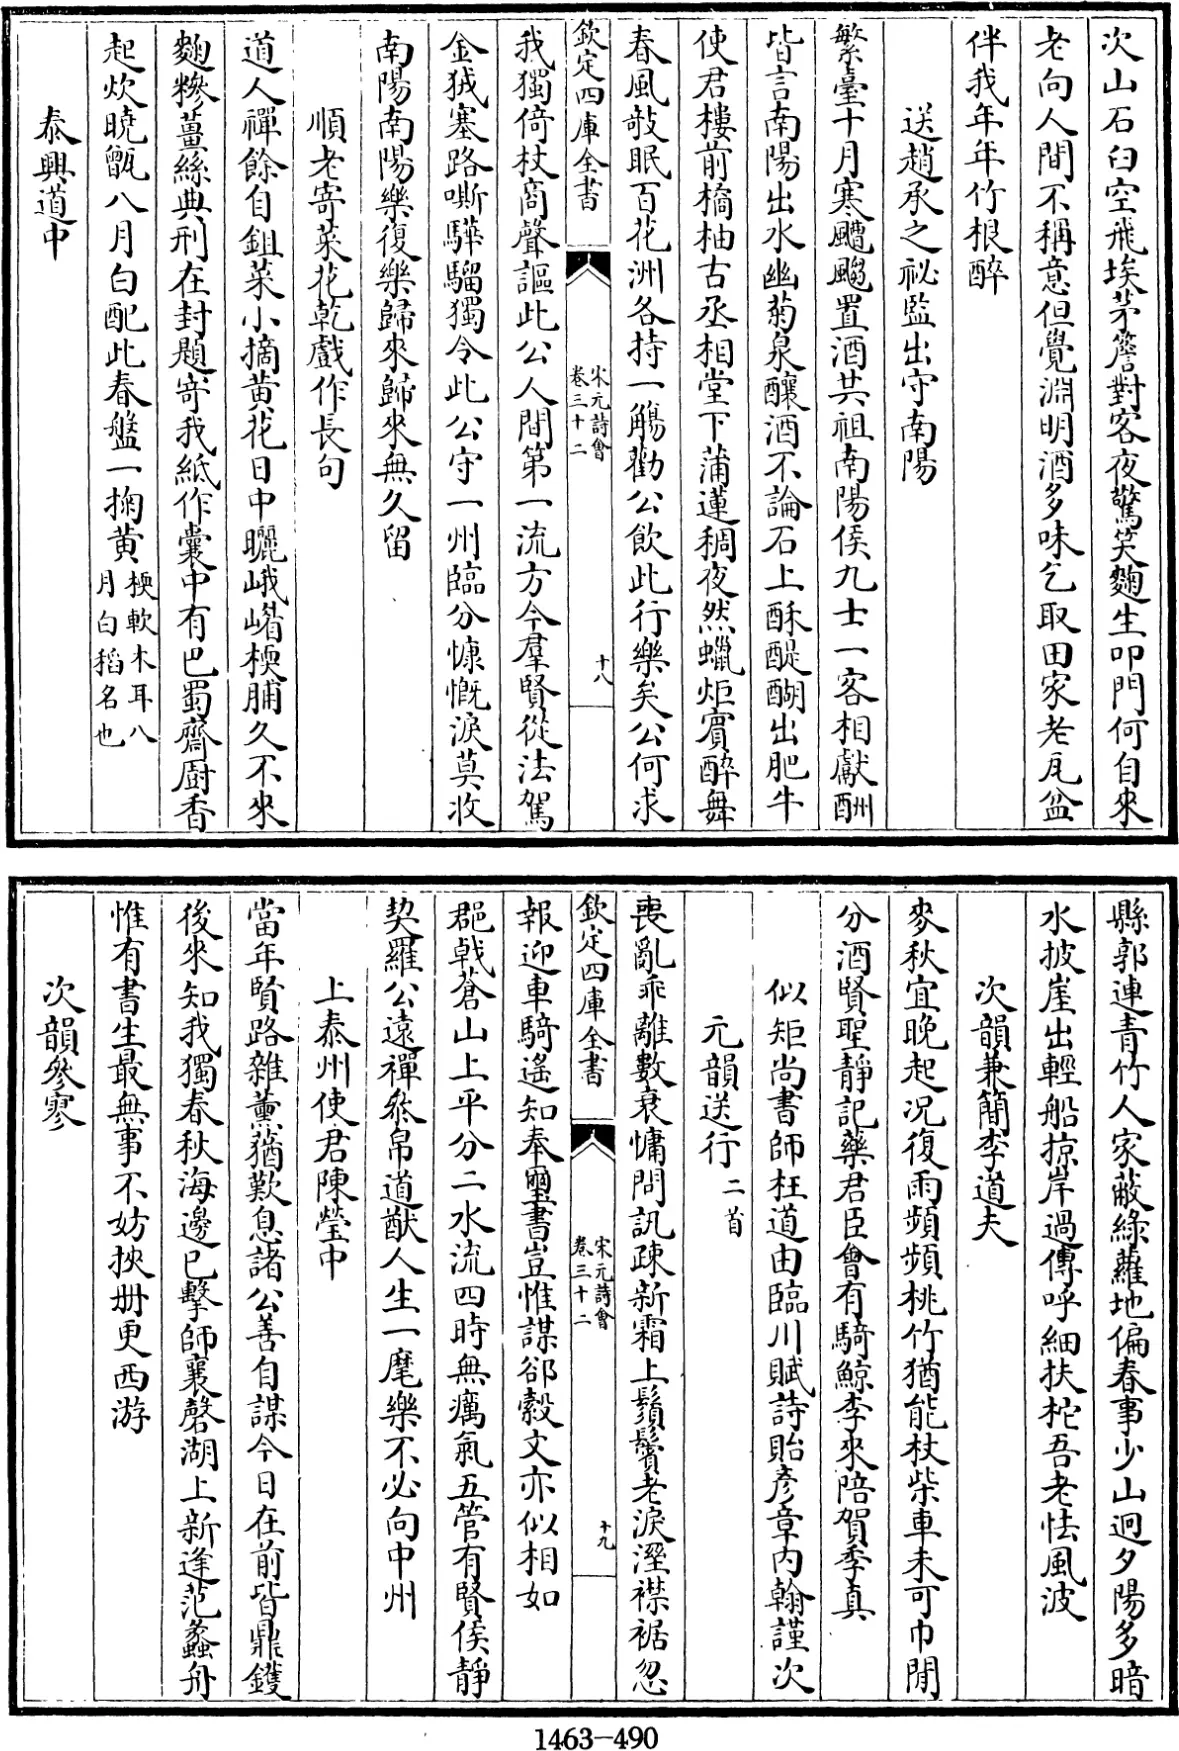 次山石臼空飛埃茅簷對客夜驚笑麴生叩門何自來
老向人間不稱意但覺淵明酒多味乞取田家老瓦盆
伴我年年竹根醉
送趙承之祕監出守南陽
繁臺十月寒飀颸置酒共祖南陽侯九士一客相獻酬
皆言南陽出水幽菊泉釀酒不論石上酥醍醐出肥牛
使君樓前橘柚古丞相堂下蒲蓮稠夜然蠟炬賓醉舞
春風敧眠百花洲各持一觴勸公飲此行樂矣公何求
欽定四庫全書
宋元詩會
卷三十二
十八
我獨倚杖商聲謳此公人間第一流方今羣賢從法駕
金狨塞路嘶驊騮獨令此公守一州臨分慷慨淚莫收
南陽南陽樂復樂歸來歸來無久留
順老寄菜花乾戲作長句
道人禪餘自鉏菜小摘黄花日中曬峨嵋楩脯久不來
麴糝薑絲典刑在封題寄我紙作囊中有巴蜀齋廚香
起炊曉甑八月白配此春盤一掬黄
楩軟木耳八
月白稻名也
泰興道中
縣郭連青竹人家蔽綠蘿地偏春事少山迥夕陽多暗
水披崖出輕船掠岸過傳呼細扶柁吾老怯風波
次韻兼簡李道夫
麥秋宜晚起况復雨頻頻桃竹猶能杖柴車未可巾閒
分酒賢聖靜記藥君臣會有騎鯨李來陪賀季真
似矩尚書師枉道由臨川賦詩貽彥章内翰謹次
元韻送行
二首
喪亂乖離數衰慵問訊疎新霜上鬚鬢老淚溼襟裾忽
欽定四庫全書
宋元詩會
卷三十二
十九
報迎車騎遙知奉璽書豈惟謀郤縠文亦似相如
郡戟蒼山上平分二水流四時無癘氣五管有賢侯靜
契羅公遠禪叅帛道猷人生一麾樂不必向中州
上泰州使君陳瑩中
當年賢路雜薰蕕歎息諸公善自謀今日在前皆鼎鑊
後來知我獨春秋海邊已擊師襄磬湖上新逢范蠡舟
惟有書生最無事不妨挾册更西游
次韻參寥
1463-490